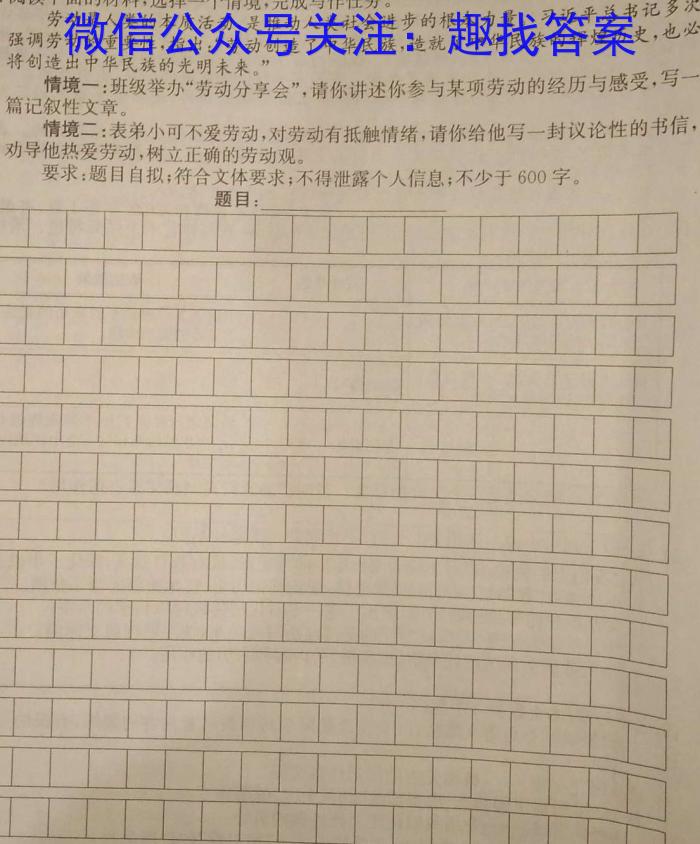 阅读下面的材料,选择一个情境,完成写作任务。
微信公众号关注：趣找答案
劳 的本质活动,是推动 社会进步的根 习近平总书记多次
强调劳动 重要 劳动创造 中华民族,造就 华民族 辉煌历史,也必
将创造出中华民族的光明未来。”
情境一:班级举办“劳动分享会”,请你讲述你参与某项劳动的经历与感受,写一
篇记叙性文章。
情境二:表弟小可不爱劳动,对劳动有抵触情绪,请你给他写一封议论性的书信,
劝导他热爱劳动,树立正确的劳动观。
要求:题目自拟;符合文体要求;不得泄露个人信息;不少于600字。
题目: